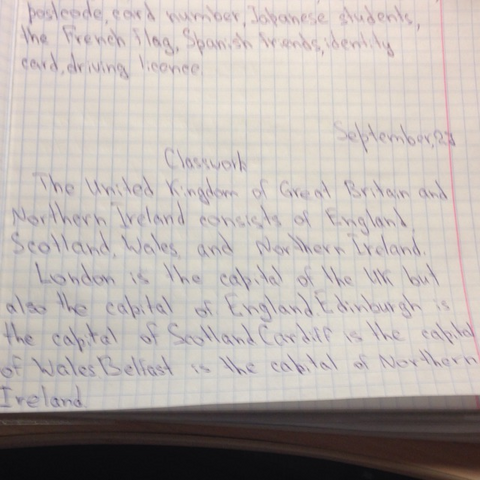 postcode, card number, Japanese students,
the French flag, Spanish friends, identity
card, driving licence
September, 27
Classwork
The United Kingdom of Great Britain and
Northern Ireland consists of England,
Scotland, Wales, and Northern Ireland.
London is the capital of the UK but
also the capital of England. Edinburgh is
the capital of Scotland. Cardiff is the capital
of Wales. Belfast is the capital of Northern
Ireland